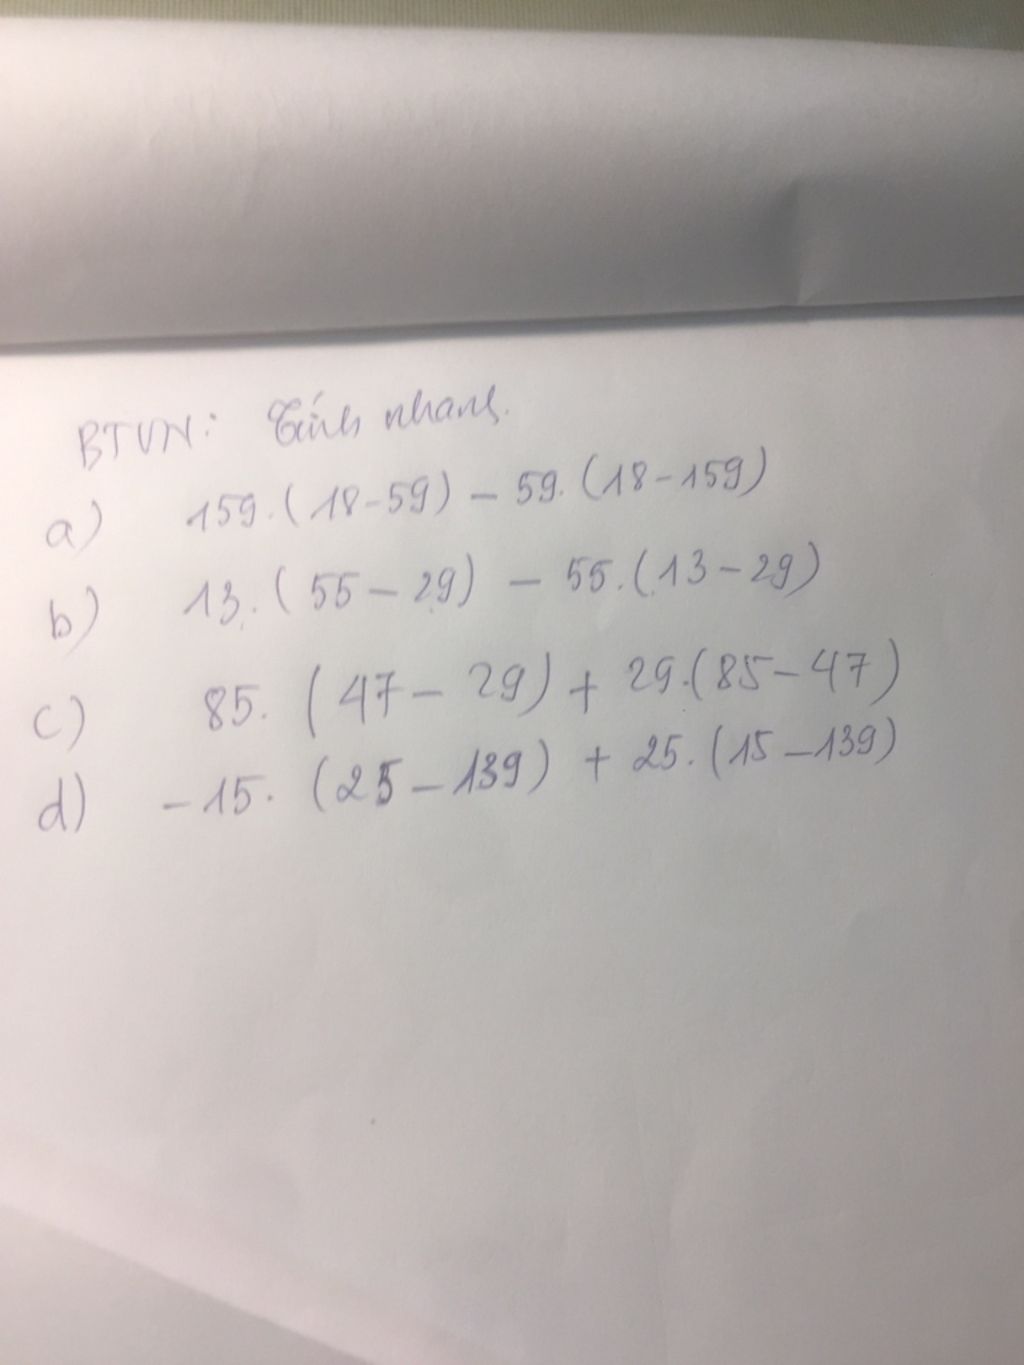 BTVN: Tính nhanh.
a) 159.(18-59) - 59.(18-159)
b) 13.(55-29) - 55.(13-29)
c) 85.(47-29) + 29.(85-47)
d) -15.(25-139) + 25.(15-139)